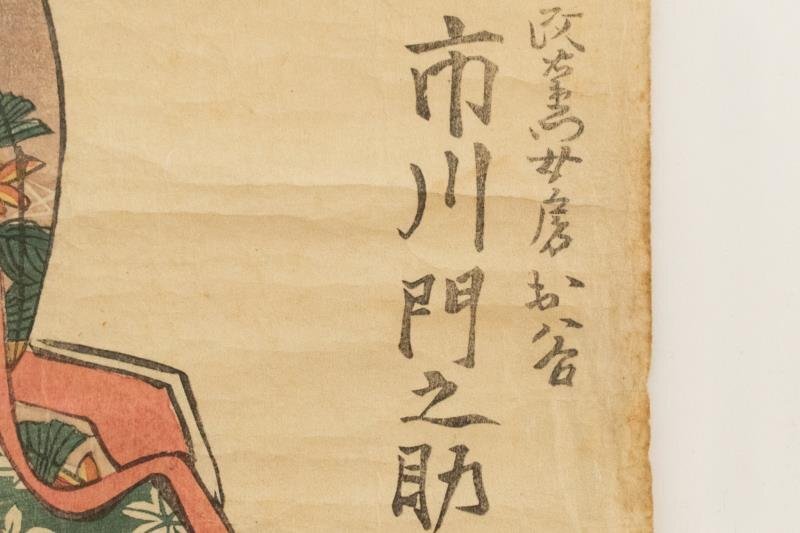 政右衛門女房お谷
市川門之助